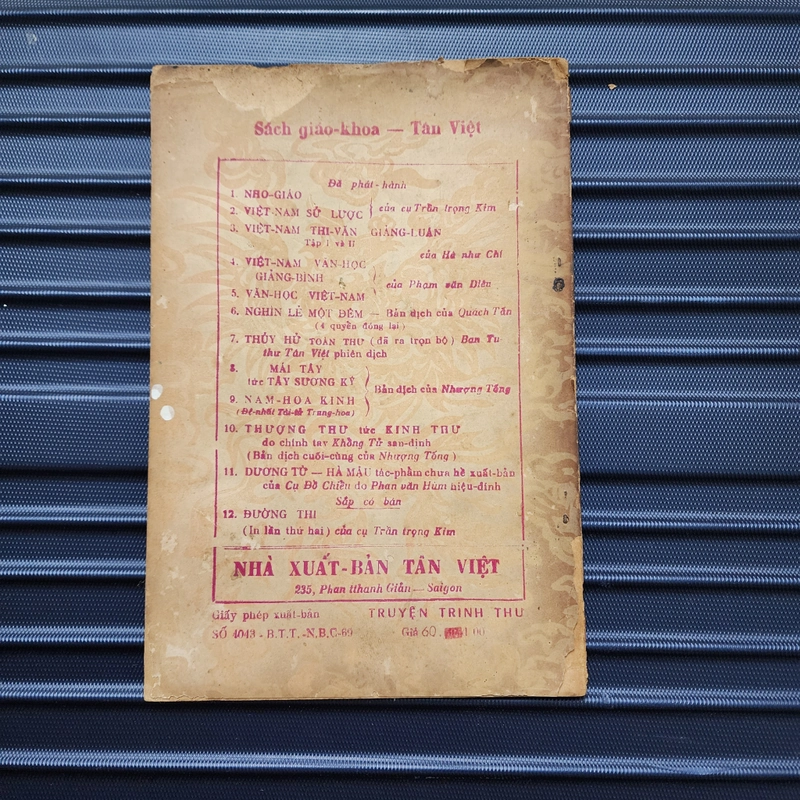 Sách giáo-khoa — Tân Việt
Đã phát-hành
1. NHO-GIÁO
2. VIỆT-NAM SỬ LƯỢC
của cụ Trần trọng Kim
3. VIỆT-NAM THI-VĂN GIẢNG-LUẬN
Tập I và II
của Hà như Chi
4. VIỆT-NAM VĂN-HỌC
GIẢNG-BÌNH
5. VĂN-HỌC VIỆT-NAM
của Phạm văn Diêu
6. NGHÌN LẺ MỘT ĐÊM — Bản dịch của Quách Tấn
(4 quyển đóng lại)
7. THỦY HỬ TOÀN THƯ (đã ra trọn bộ) Ban Tu
thư Tân Việt phiên dịch
8. MÁI TÂY
tức TÂY SƯƠNG KÝ
9. NAM-HOA KINH
(Đệ-nhất Tài-tử Trung-hoa)
Bản dịch của Nhượng Tống
10. THƯỢNG THƯ tức KINH THƯ
do chính tay Khổng Tử san-định
(Bản dịch cuối-cùng của Nhượng Tống)
11. DƯƠNG TỪ — HÀ MẬU tác-phẩm chưa hề xuất-bản
của Cụ Đồ Chiểu do Phan văn Hùm hiệu-đính
Sắp có bán
12. ĐƯỜNG THI
(In lần thứ hai) của cụ Trần trọng Kim
NHÀ XUẤT-BẢN TÂN VIỆT
235, Phan tthanh Giản — Saigon
Giấy phép xuất-bản TRUYỆN TRINH THU
SỐ 4043 - B.T.T.-N.B.C-69 Giá 60.